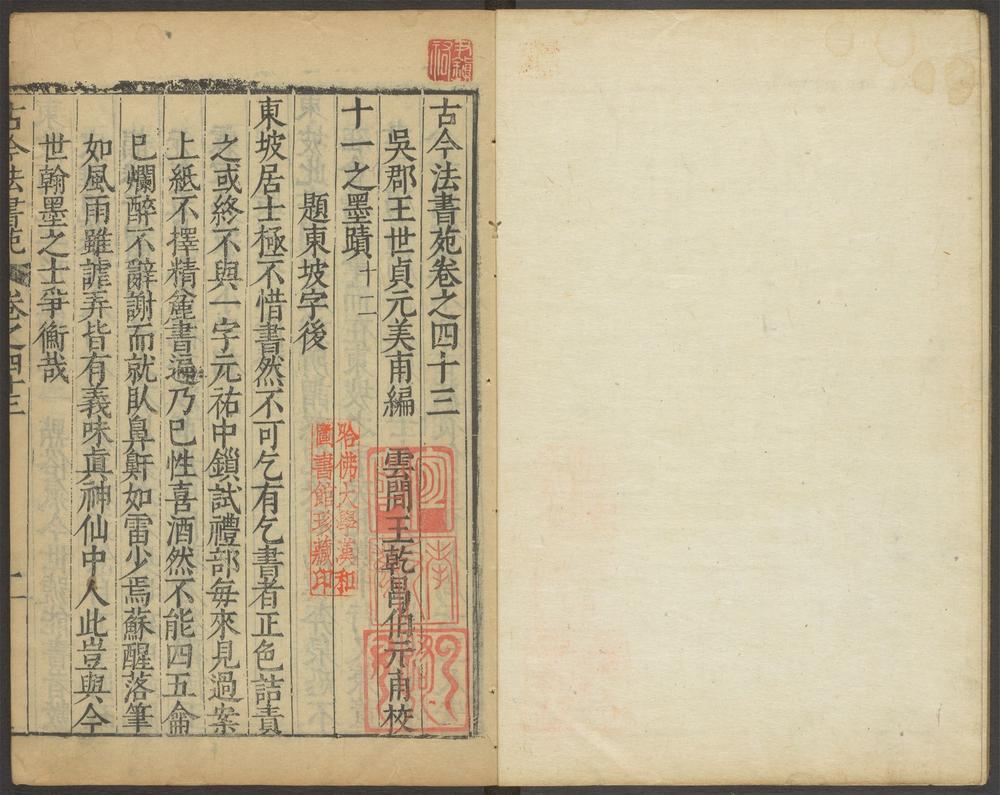 古今法書苑卷之四十三
吳郡王世貞元美甫編 雲間王乾昌伯元甫校
十一之墨蹟十二
題東坡字後
東坡居士極不惜書然不可乞有乞書者正色詰責
之或終不與一字元祐中鎖試禮部每來見過案
上紙不擇精麄書遍乃已性喜酒然不能四五龠
已爛醉不辭謝而就臥鼻鼾如雷少焉蘇醒落筆
如風雨雖謔弄皆有義味眞神仙中人此豈與今
世翰墨之士爭衡哉
古今法書苑 卷之四十三 一
哈佛大學漢和
圖書館珍藏印